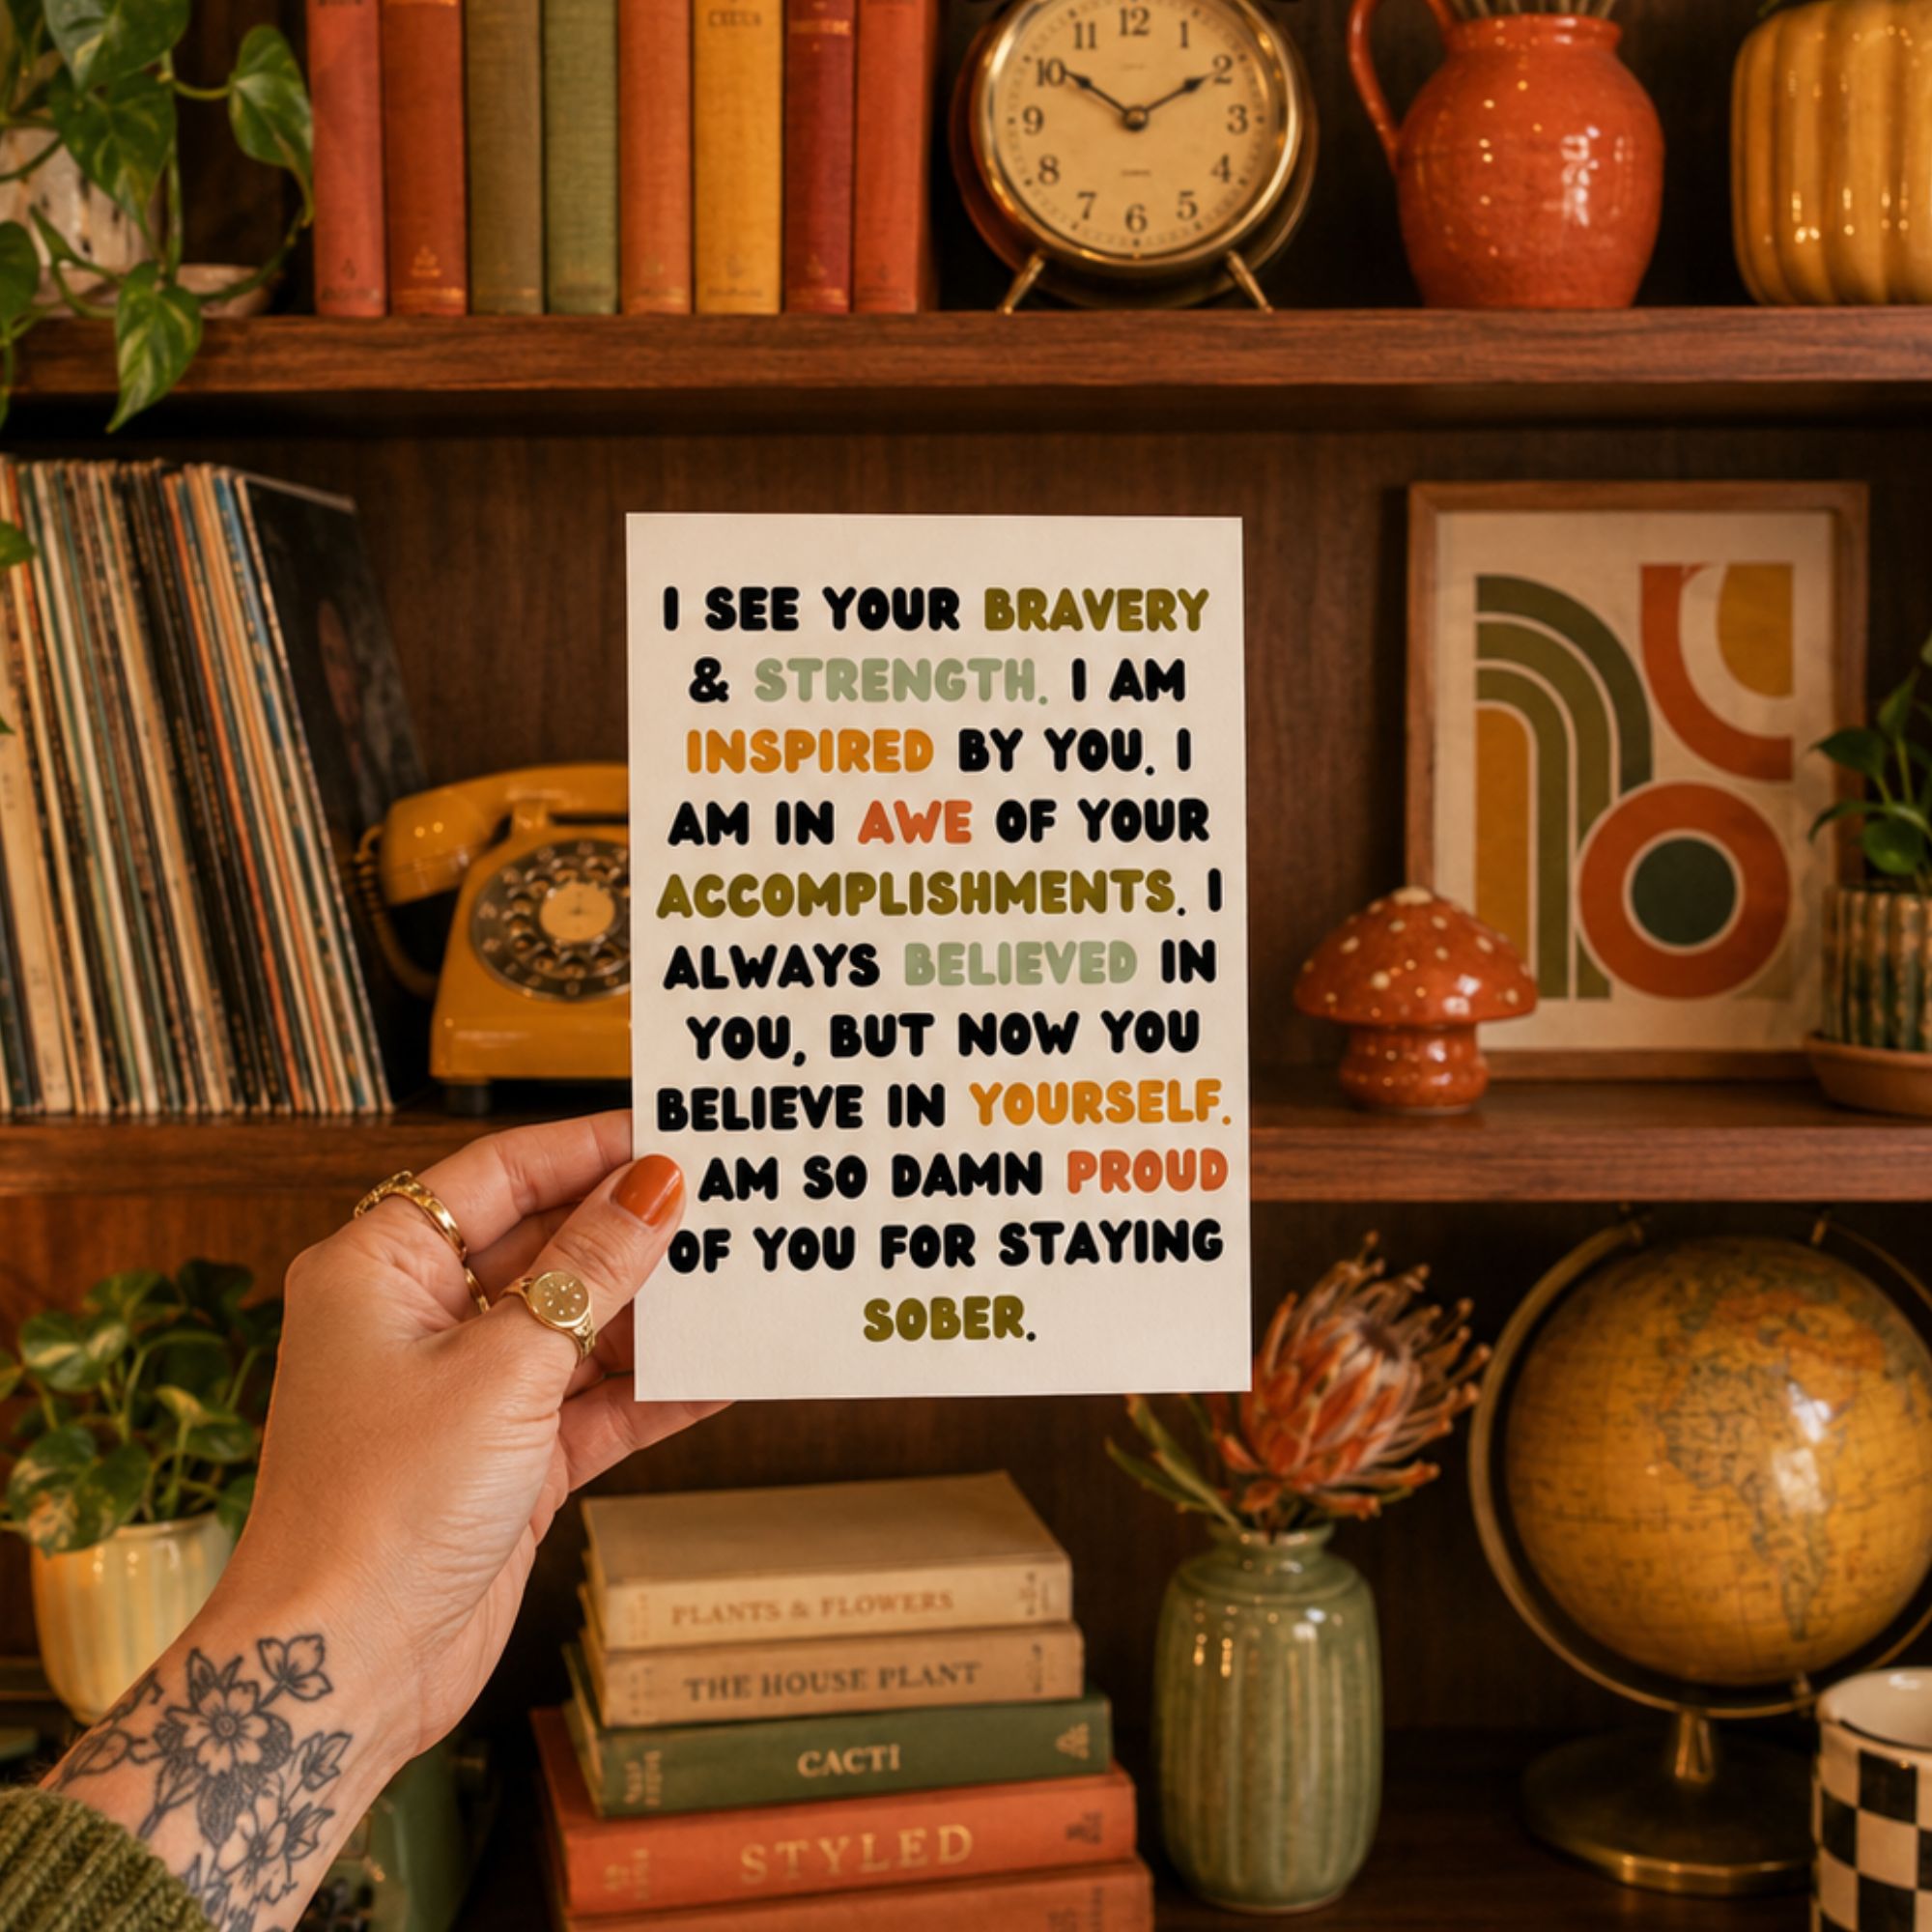 12
11
1
10
2
9
3
8
4
7
5
6
I SEE YOUR BRAVERY
& STRENGTH. I AM
INSPIRED BY YOU. I
AM IN AWE OF YOUR
ACCOMPLISHMENTS. I
ALWAYS BELIEVED IN
YOU, BUT NOW YOU
BELIEVE IN YOURSELF.
AM SO DAMN PROUD
OF YOU FOR STAYING
SOBER.
PLANTS & FLOWERS
THE HOUSE PLANT
CACTI
STYLED